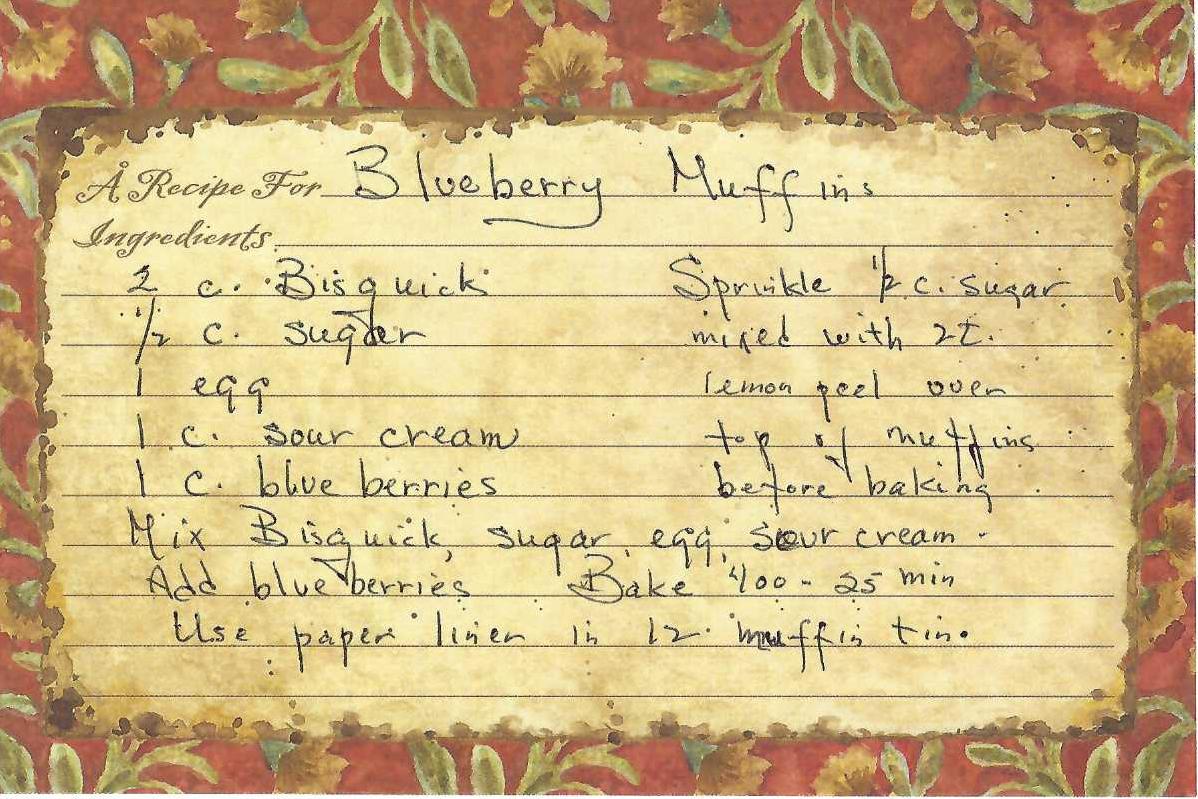 A Recipe For Blueberry Muffins
Ingredients
2 c. Bisquick
1/2 c. sugar
1 egg
1 c. sour cream
1 c. blueberries
Sprinkle 1/2 c. sugar
mixed with 2t.
lemon peel over
top of muffins
before baking.
Mix Bisquick, sugar, egg, sour cream.
Add blueberries Bake 400 - 25 min
Use paper liner in 12 muffin tin.